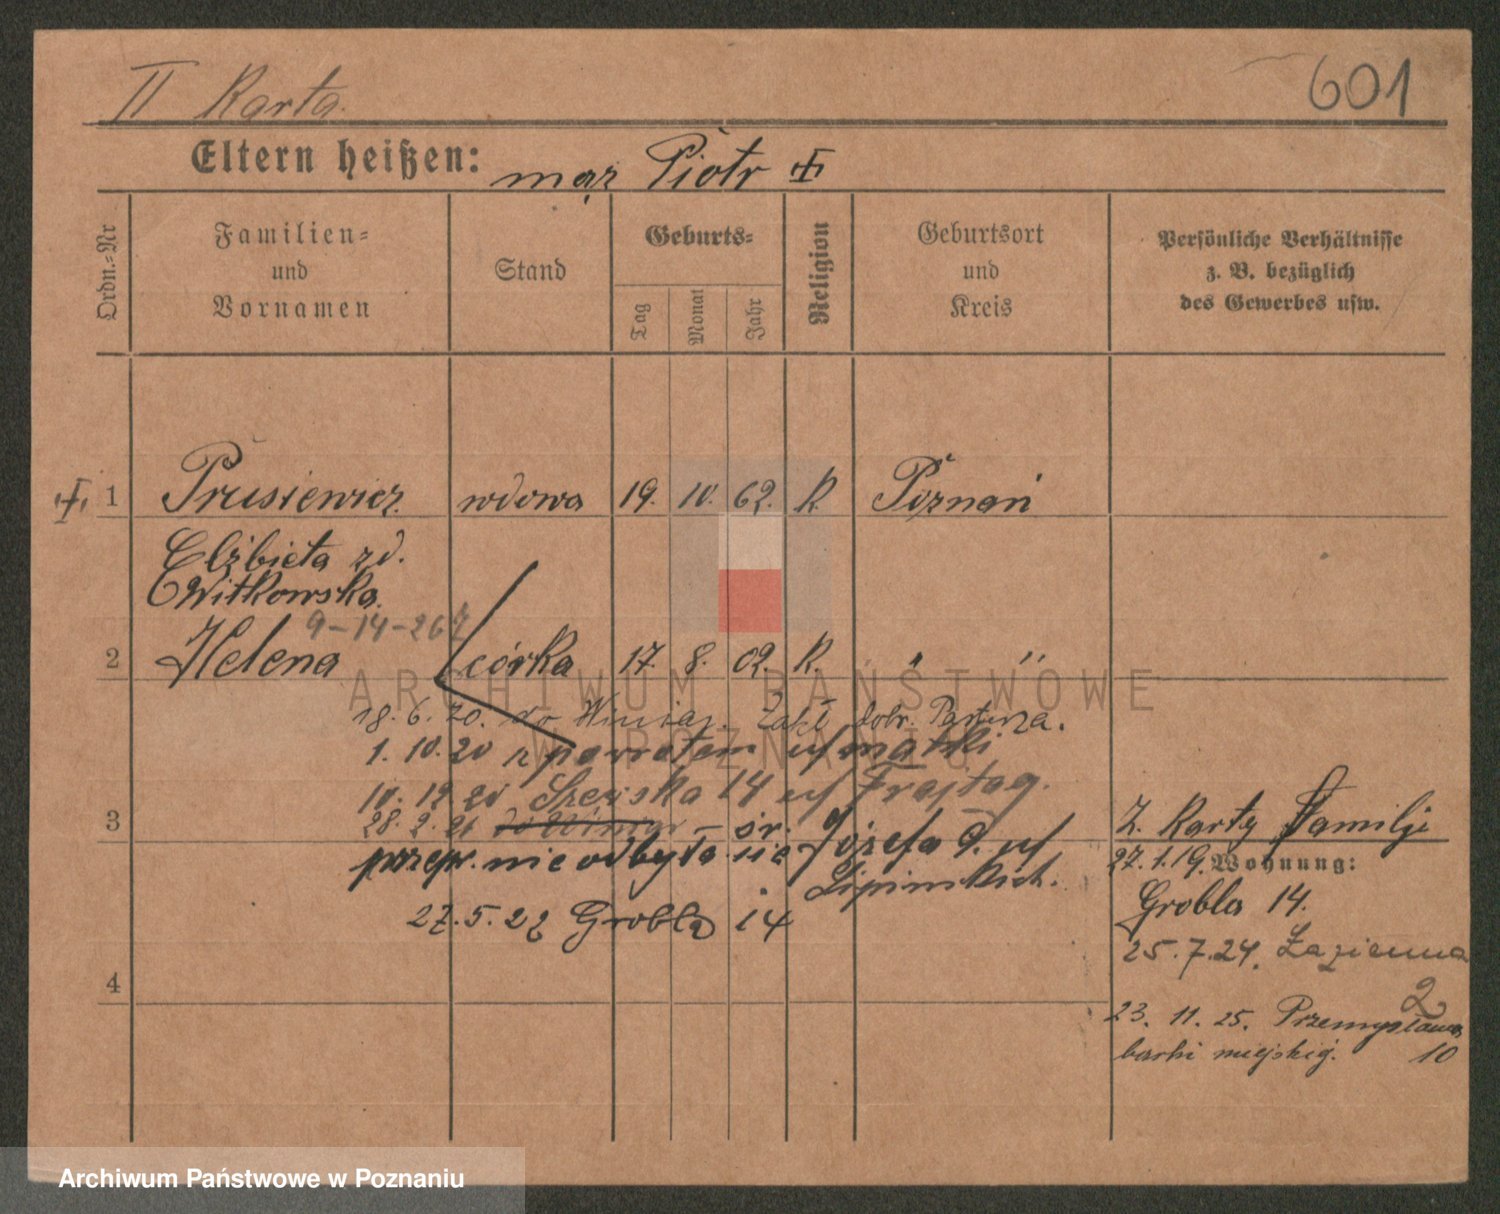 II Karta.
601
Eltern heißen: mąż Piotr ✝
Ordn.=Nr
Familien= und Vornamen
Stand
Geburts=
Tag
Monat
Jahr
Religion
Geburtsort und Kreis
Persönliche Verhältnisse
z. B. bezüglich
des Gewerbes usw.
✝ 1 Prusiewicz wdowa 19. 10. 62. K. Poznań
Elżbieta zd.
Witkowska.
9-14-26
2 Helena córka 17. 8. 02. K. " "
ARCHIWUM PAŃSTWOWE
W POZNANIU
18. 6. 20. do Zakł dobr. Pasterza.
1. 10. 20 z powrotem u/ matki
10. 12 20 14 u/ Frajtag.
28. 2. 21 – św. Józefa d. u/
3
przepr. nie odbyła się Lipinskich.
27. 5. 22 Grobla 14
4
Z. Karty Familji
27. 1. 19. Wohnung:
Grobla 14.
25. 7. 24. Łazienna
2
23. 11. 25. Przemysława
barki miejskie. 10
Archiwum Państwowe w Poznaniu